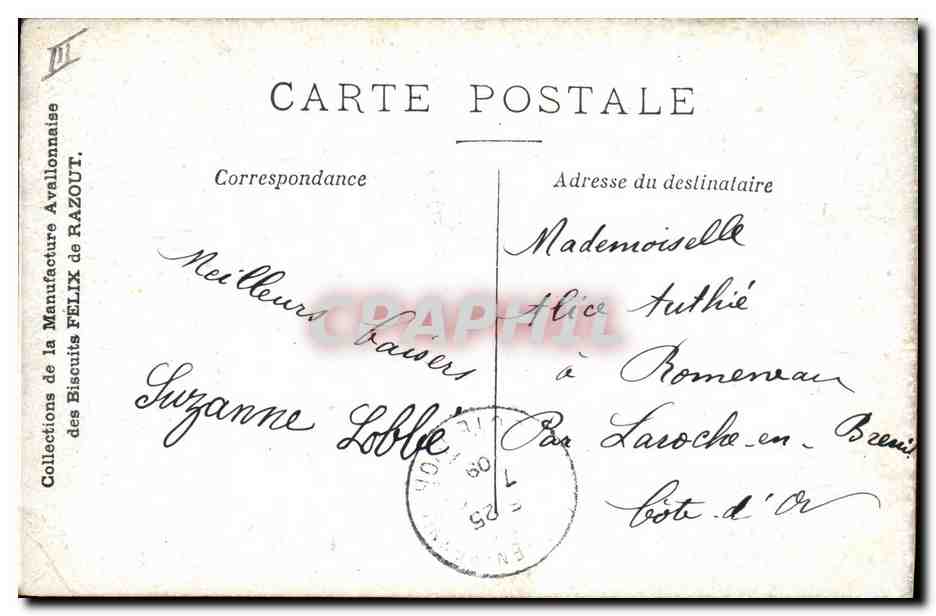 III
Collections de la Manufacture Avallonnaise
des Biscuits FÉLIX de RAZOUT.
CARTE POSTALE
Correspondance
Adresse du destinataire
Meilleurs baisers
Suzanne Lobbé
Mademoiselle
Alice Authié
à Romeneau
Par Laroche-en-Brenil
Côte-d'Or
CPAPHIL
25
09